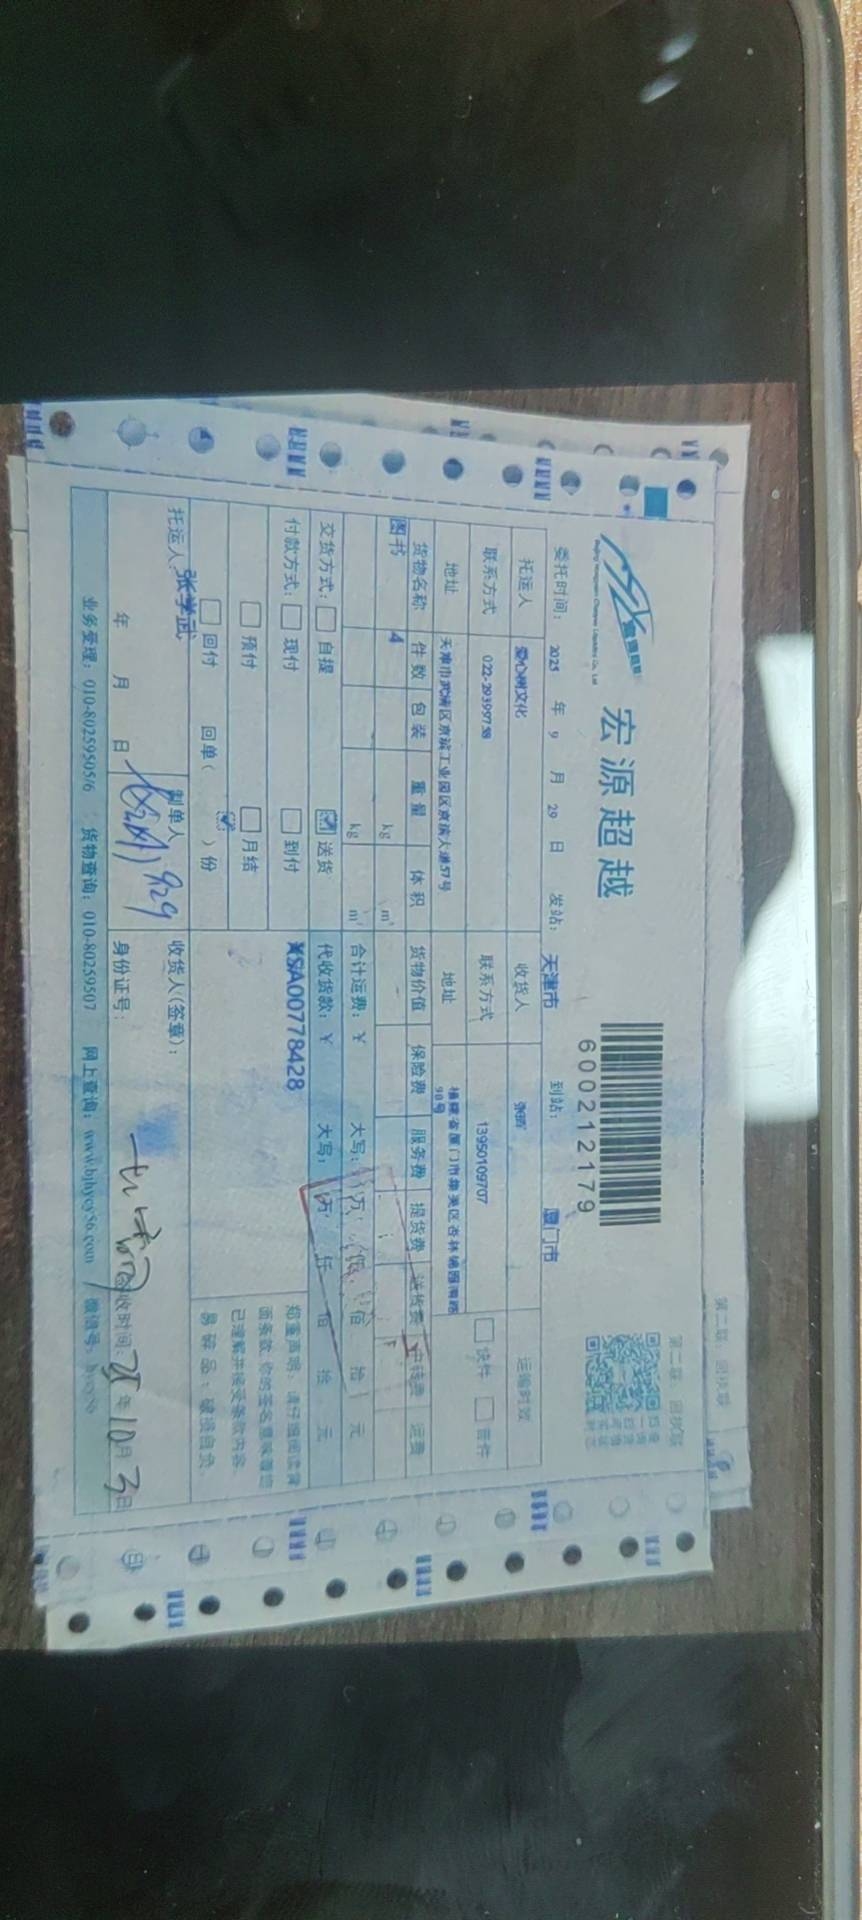 第二联：回执联
宏源超越
600212179
委托时间： 2025 年 9 月 29 日 发站： 天津市 到站： 厦门市
托运人 爱心树文化 收货人 运输时效
联系方式 022-29399758 联系方式 13950109707 快件 普件
地址 天津市武清区京滨工业园区京滨大道57号 地址 福建省厦门市集美区杏林锦园南路98号
货物名称 件数 包装 重量 体积 货物价值 保险费 服务费 提货费 送货费 中转费 运费
图书 4 kg m³
kg m³ 合计运费：￥ 大写： 万 仟 佰 拾 元
交货方式： 自提 送货 代收货款：￥ 大写： 万 仟 佰 拾 元
付款方式： 现付 到付 XSA00778428
预付 月结
回付 回单（ ）份
郑重声明：请仔细阅读背
面条款，你的签名意味着您
已理解并接受条款内容。
易碎品：破损自负。
托运人： 张学武 制单人 收货人（签章）：
年 月 日 929 身份证号： 签收时间： 25 年 10 月 3 日
业务受理：010-80259505/6 货物查询：010-80259507 网上查询：www.bjhycy56.com 微信号：hycy56